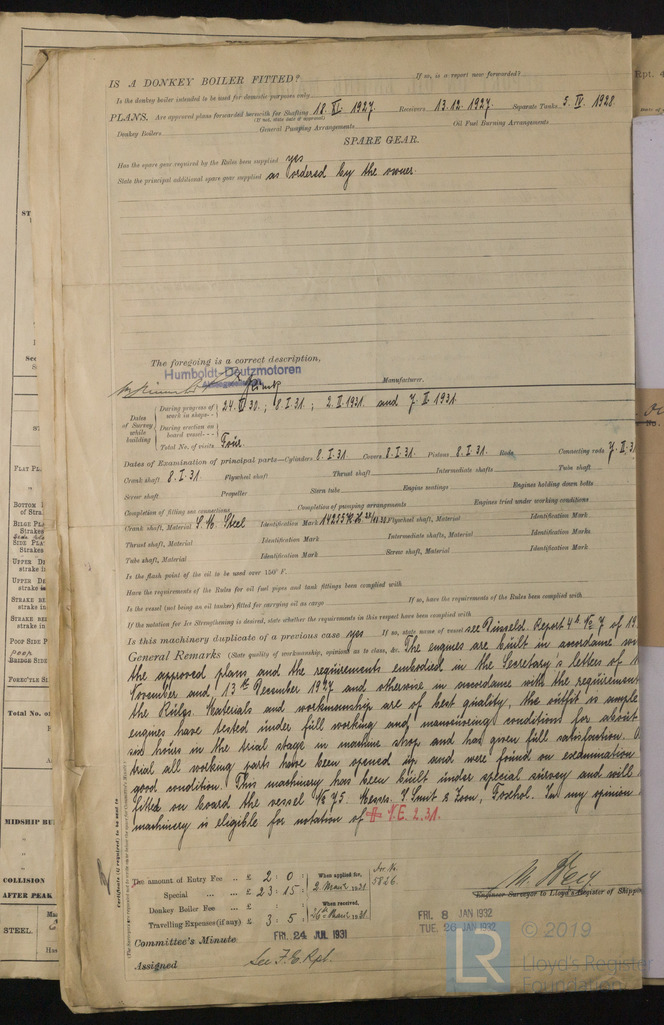 IS A DONKEY BOILER FITTED? If so, is a report now forwarded?
Is the donkey boiler intended to be used for domestic purposes only
PLANS. Are approved plans forwarded herewith for Shafting 18.XI.1927. Receivers 13.12.1927. Separate Tanks 5.IV.1928
(If not, state date of approval)
Donkey Boilers General Pumping Arrangements Oil Fuel Burning Arrangements
SPARE GEAR.
Has the spare gear required by the Rules been supplied yes
State the principal additional spare gear supplied as ordered by the owner.
The foregoing is a correct description,
Humboldt-Deutzmotoren
Manufacturer.
Dates of Survey while building
During progress of work in shops -- 8.I.31; 2.II.1931 and 7.II.1931.
During erection on board vessel ---
Total No. of visits Four
Dates of Examination of principal parts—Cylinders 8.I.31 Covers 8.I.31. Pistons 8.I.31. Rods Connecting rods 7.II.31
Crank shaft 8.I.31. Flywheel shaft Thrust shaft Intermediate shafts Tube shaft
Screw shaft Propeller Stern tube Engine seatings Engines holding down bolts
Completion of fitting sea connections Completion of pumping arrangements Engines tried under working conditions
Crank shaft, Material S.M. Steel Identification Mark Flywheel shaft, Material Identification Mark
Thrust shaft, Material Identification Mark Intermediate shafts, Material Identification Marks
Tube shaft, Material Identification Mark Screw shaft, Material Identification Mark
Is the flash point of the oil to be used over 150° F.
Have the requirements of the Rules for oil fuel pipes and tank fittings been complied with
Is the vessel (not being an oil tanker) fitted for carrying oil as cargo If so, have the requirements of the Rules been complied with
If the notation for Ice Strengthening is desired, state whether the requirements in this respect have been complied with
Is this machinery duplicate of a previous case yes If so, state name of vessel see Düsseld. Report 4b № 7 of 19
General Remarks (State quality of workmanship, opinions as to class, &c. The engines are built in accordance
the approved plans and the requirements embodied in the Secretary's letters of
November and 13th December 1927 and otherwise in accordance with the requirement
the Rules. Materials and workmanship are of best quality, the outfit is ample
engines have tested under full working and manœuvring conditions for about
six hours in the trial stage in machine shop and has given full satisfaction.
trial all working parts have been opened up and were found on examination
good condition. This machinery has been built under special survey and will
fitted on board the vessel № 75. Messrs. J. Smit & Zoon, Foxhol. In my opinion
machinery is eligible for notation of N.E. 2.31.
The amount of Entry Fee .. £ 2 : 0 : When applied for,
Special ... £ 23 : 15 : 2 March 1931
Donkey Boiler Fee ... £ : : When received,
Travelling Expenses (if any) £ 3 : 5 :
5826.
Engineer Surveyor to Lloyd's Register of Shipping
FRI. 8 JAN 1932
TUE. 26 JAN 1932
Committee's Minute FRI. 24 JUL 1931
Assigned See F.E. Rpt.
© 2019
LR
Lloyd's Register
Foundation
Rpt. 4
FLAT PL
BOTTOM
of Stra
BILGE PLA
Strakes
SIDE PLA
Strakes
UPPER DE
strake in
UPPER DE
strake in
STRAKE BE
strake in
STRAKE BE
strake in
POOP SIDE P
poop
BRIDGE SIDE
FORE'C'TLE SI
Total No. of
MIDSHIP BU
COLLISION
AFTER PEAK
STEEL.